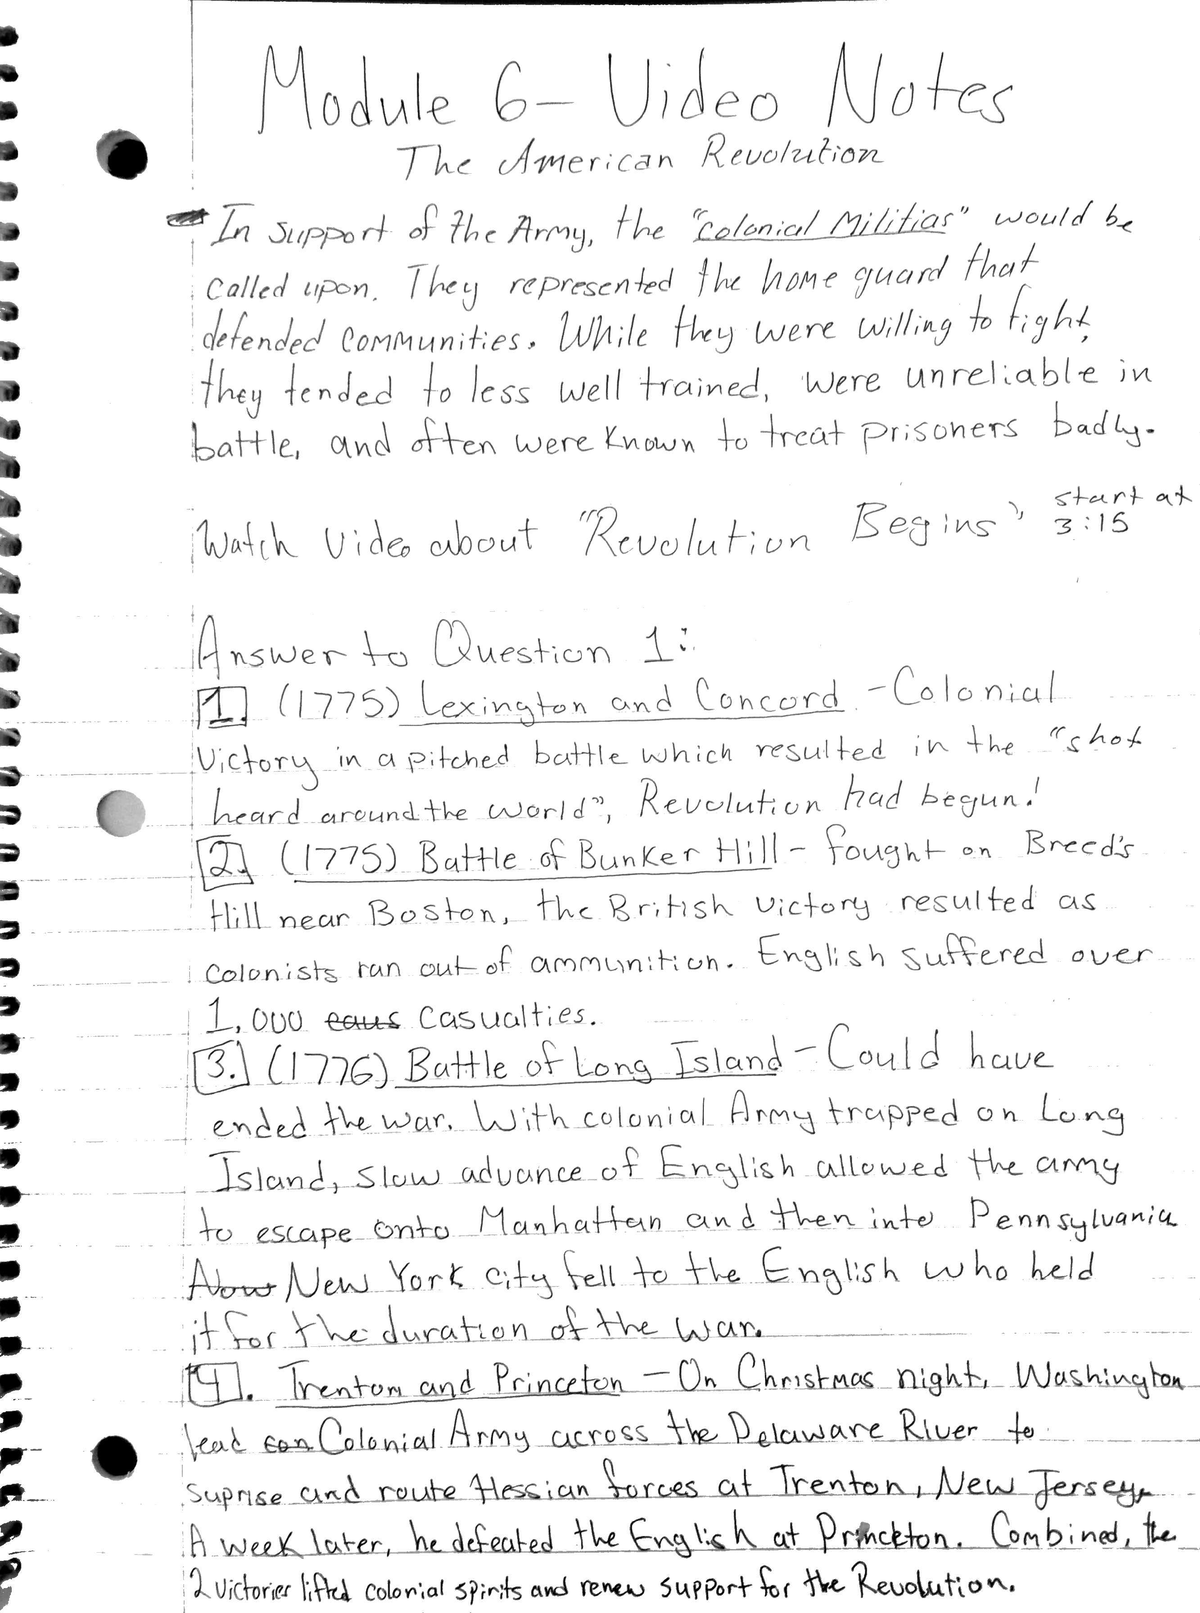 Module 6- Video Notes
The American Revolution
In support of the Army, the "Colonial Militias" would be
called upon. They represented the home guard that
defended communities. While they were willing to fight,
they tended to less well trained, were unreliable in
battle, and often were known to treat prisoners badly.
Watch Video about "Revolution Begins" start at
3:15
Answer to Question 1:
1. (1775) Lexington and Concord - Colonial
Victory in a pitched battle which resulted in the "shot
heard around the world", Revolution had begun!
2. (1775) Battle of Bunker Hill - fought on Breed's
Hill near Boston, the British victory resulted as
colonists ran out of ammunition. English suffered over
1,000 caus casualties.
3. (1776) Battle of Long Island - Could have
ended the war. With colonial Army trapped on Long
Island, slow advance of English allowed the army
to escape onto Manhattan and then into Pennsylvania
Now New York City fell to the English who held
it for the duration of the war.
4. Trenton and Princeton - On Christmas night, Washington
lead con Colonial Army across the Delaware River to
suprise and route Hessian forces at Trenton, New Jersey,
A week later, he defeated the English at Princkton. Combined, the
2 victories lifted colonial spirits and renew support for the Revolution.